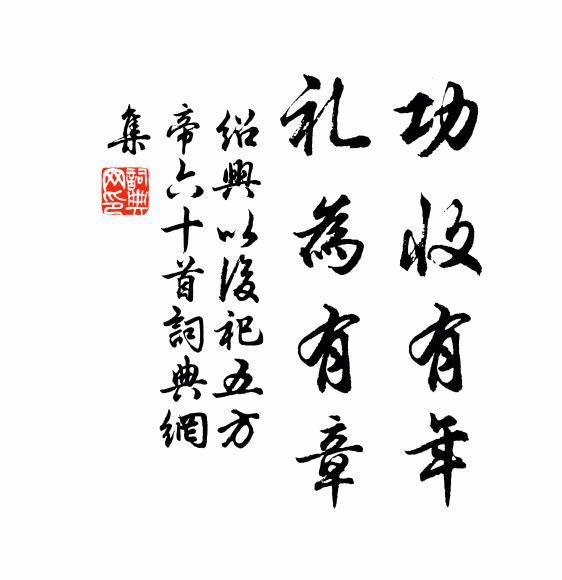 功收有年
礼為有章
紹興以後祀五方
帝六十首詞典網
集
詞典
网印